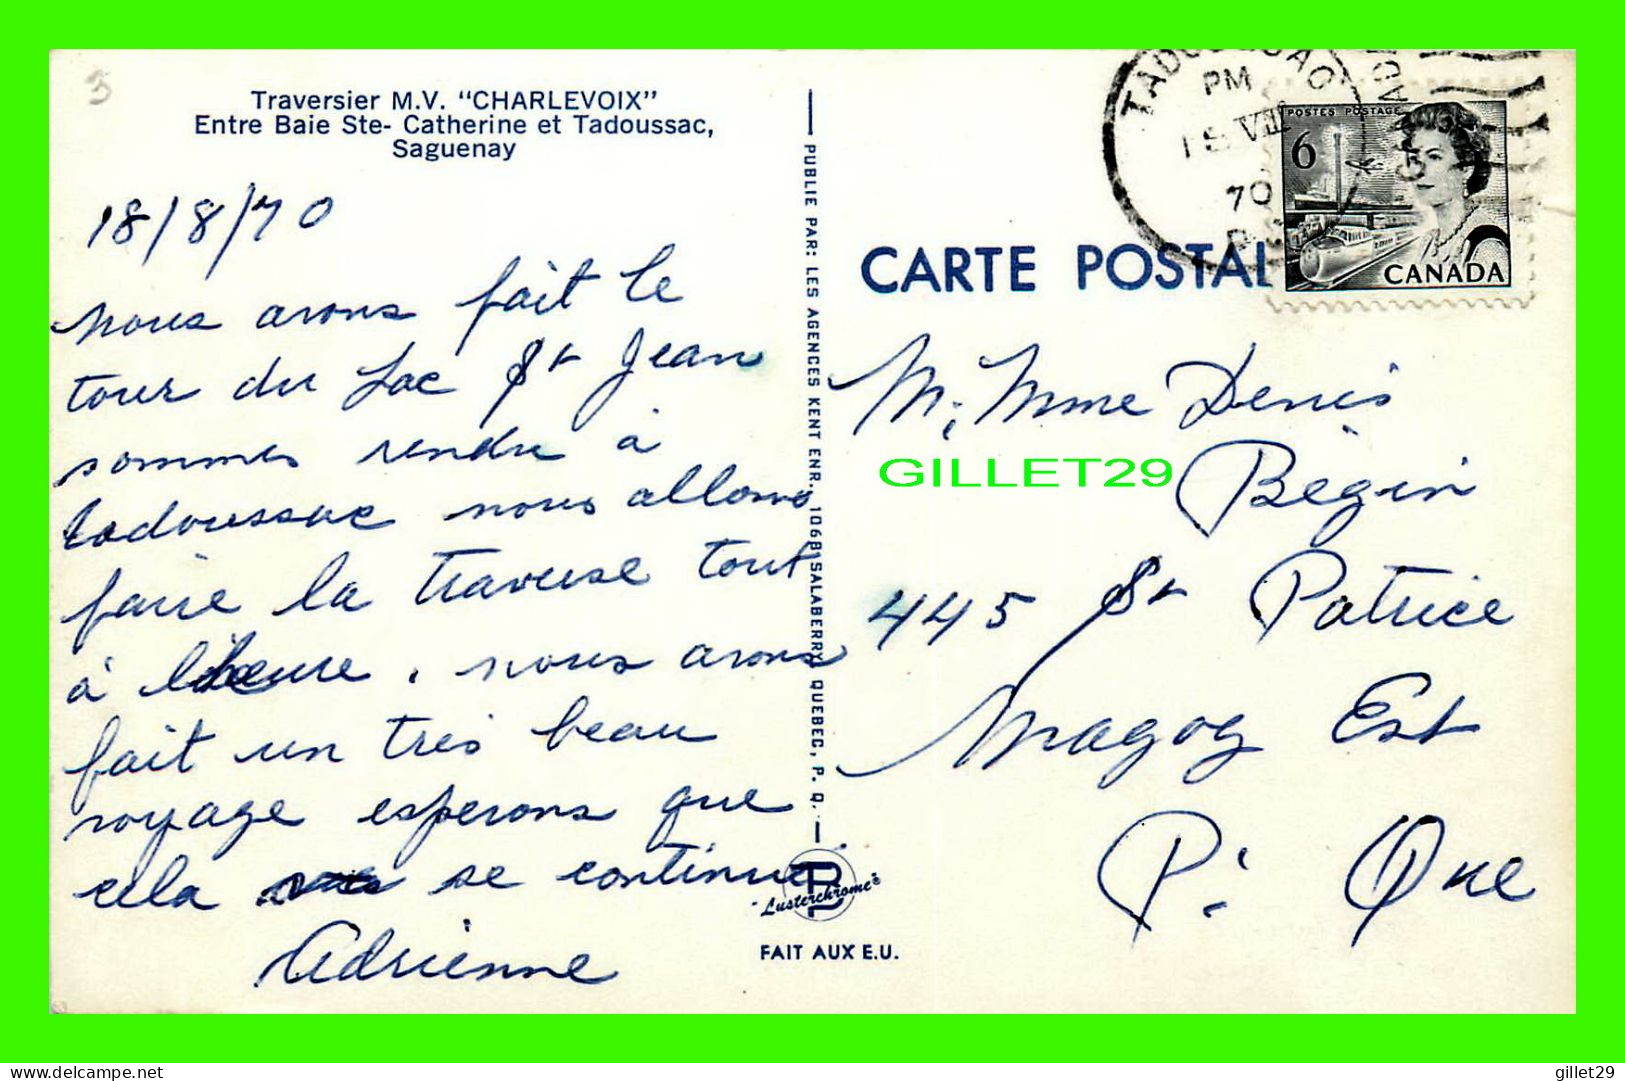 3
Traversier M.V. "CHARLEVOIX"
Entre Baie Ste- Catherine et Tadoussac,
Saguenay
18/8/70
nous avons fait le
tour du Lac St Jean
sommes rendu à
tadoussac nous allons
faire la traverse tout
à l'heure. nous avons
fait un très beau
voyage esperons que
cela se continue
Adrienne
PUBLIE PAR: LES AGENCES KENT ENR., 1068 SALABERRY, QUEBEC, P. Q.
"Lusterchrome"
FAIT AUX E.U.
TADOUSSAC
PM
VIII
70
POSTES POSTAGE
6
CANADA
CARTE POSTAL
M. Mme Denis
Bègin
GILLET29
445 St Patrice
Magog Est
P. Que
gillet29
gillet29